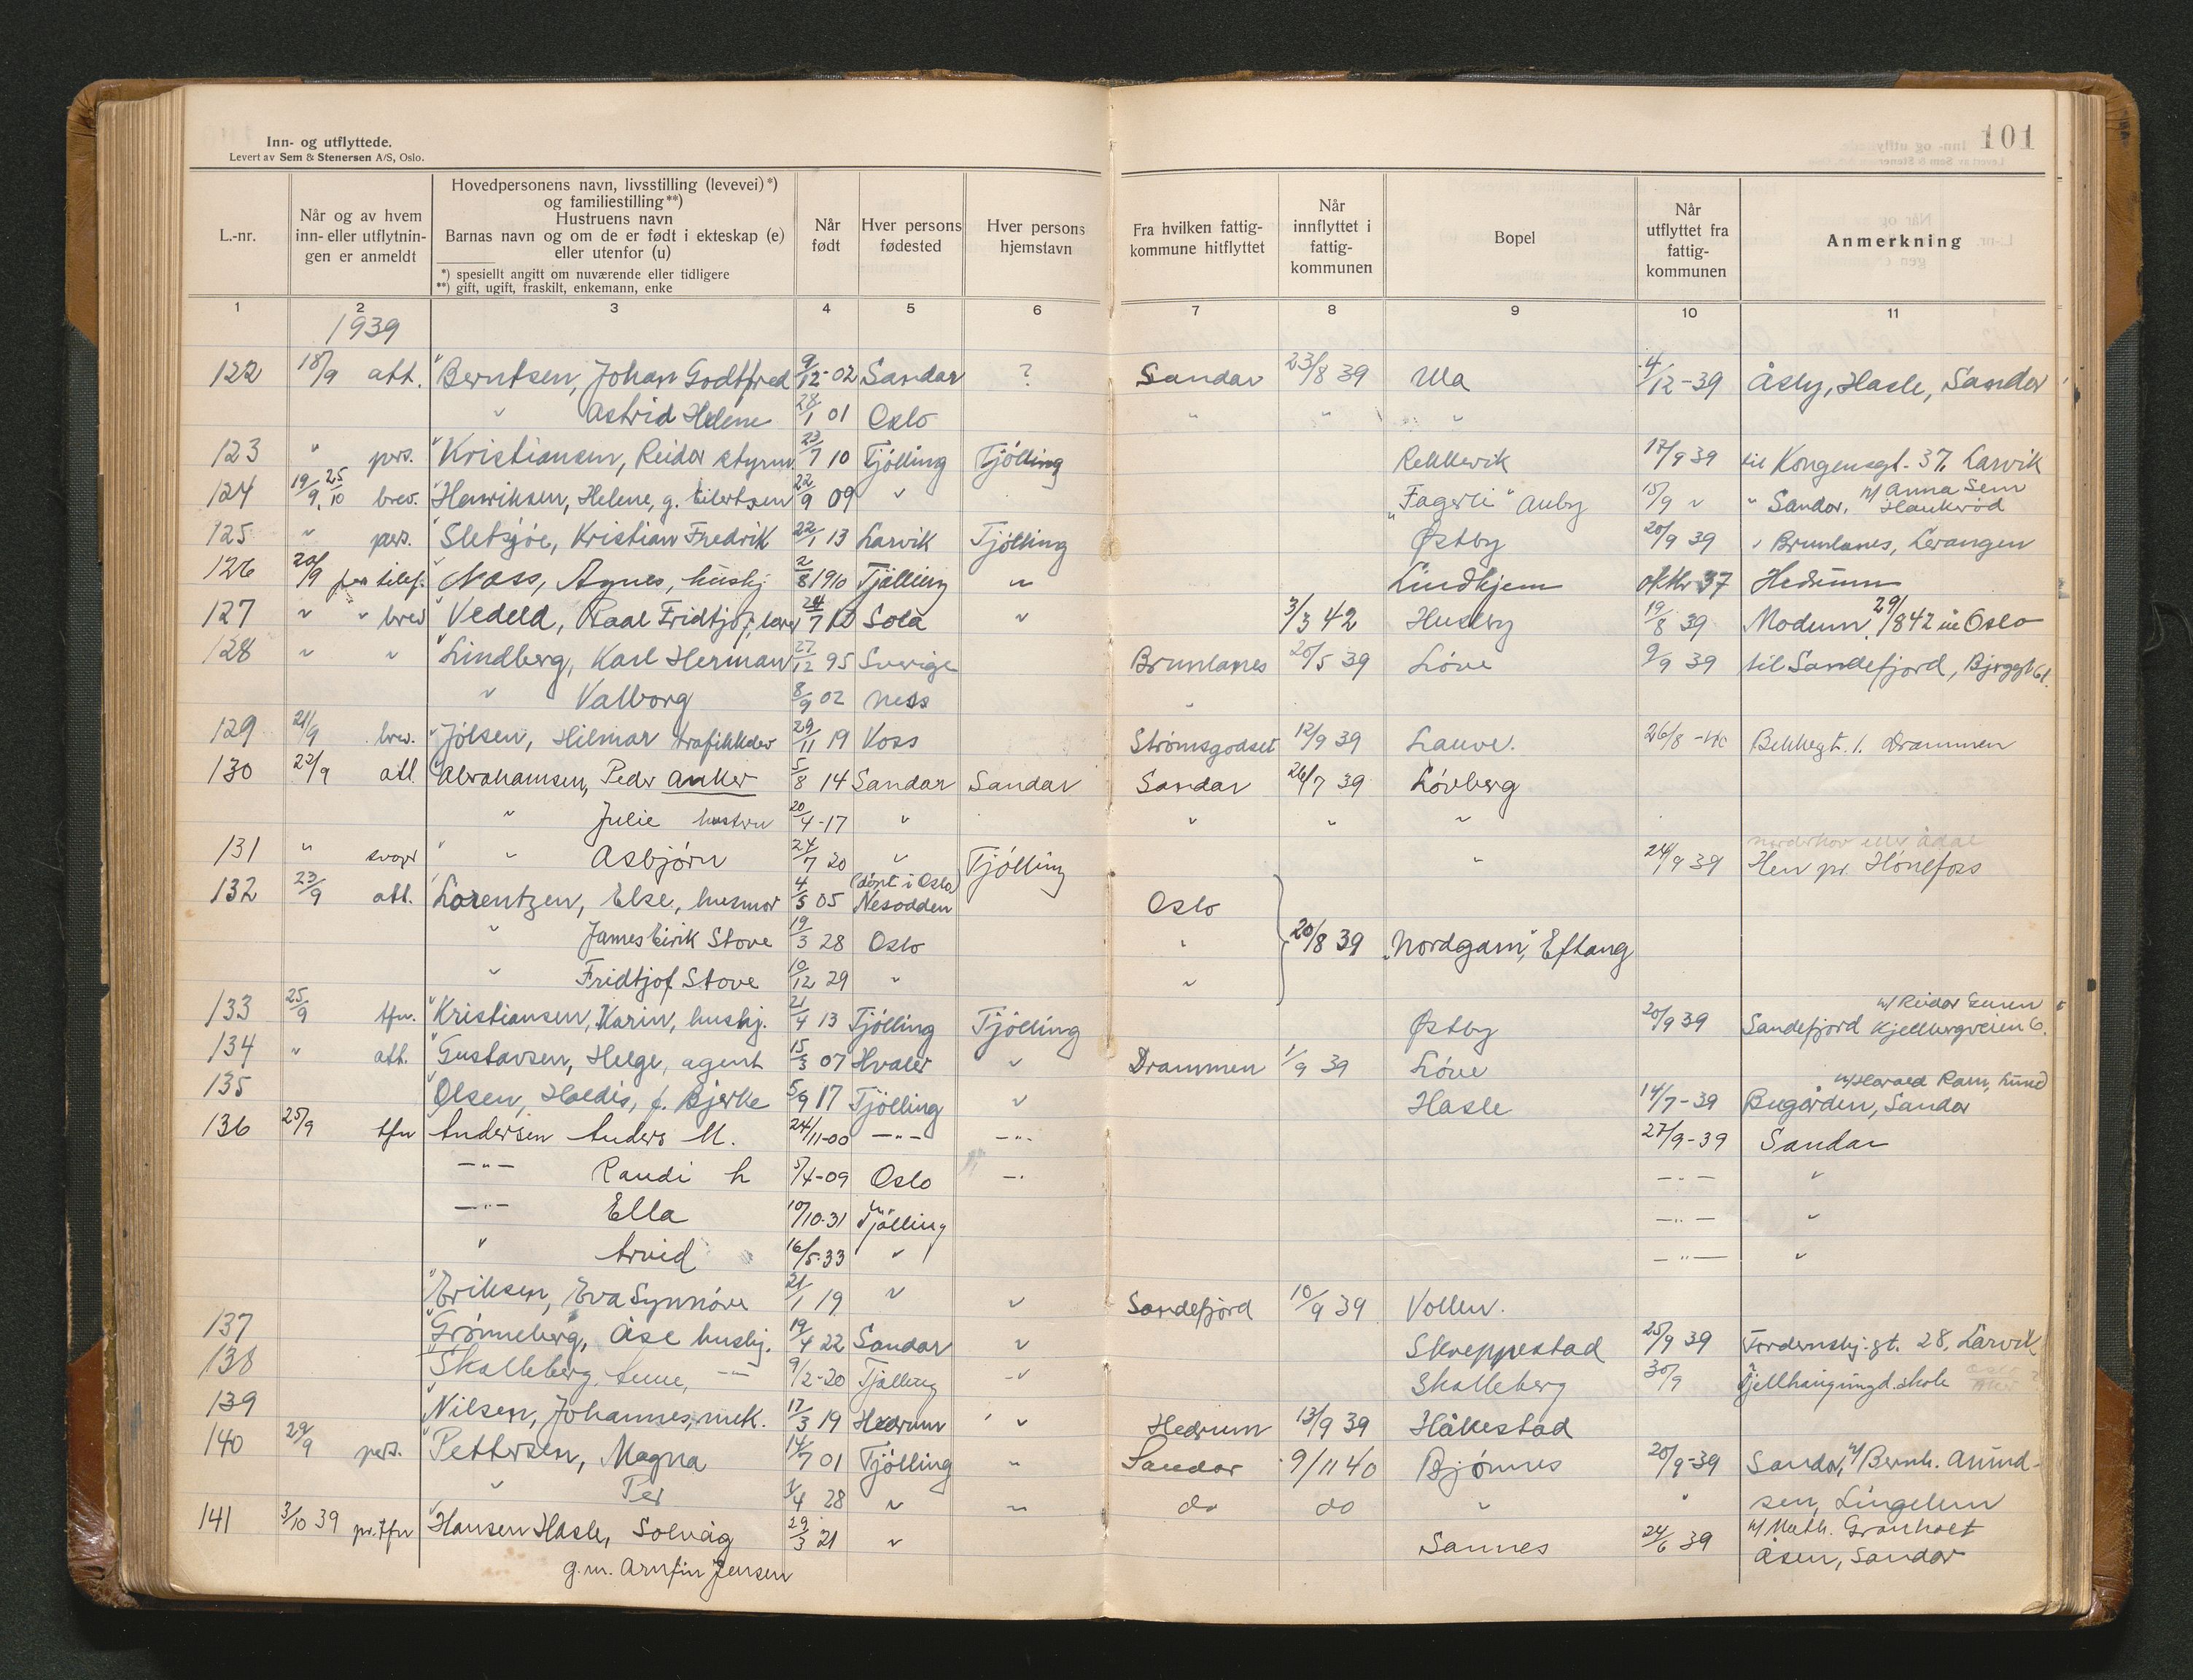 Inn- og utflyttede.
Levert av Sem & Stenersen A/S, Oslo.
101
L.-nr. | Når og av hvem inn- eller utflytningen er anmeldt | Hovedpersonens navn, livsstilling (levevei)*) og familiestilling**) Hustruens navn Barnas navn og om de er født i ekteskap (e) eller utenfor (u) *) spesiellt angitt om nuværende eller tidligere **) gift, ugift, fraskilt, enkemann, enke | Når født | Hver persons fødested | Hver persons hjemstavn | Fra hvilken fattigkommune hitflyttet | Når innflyttet i fattigkommunen | Bopel | Når utflyttet fra fattigkommunen | Anmerkning
1 2 3 4 5 6 7 8 9 10 11
1939
122 18/9 att. Berntsen, Johan Godtfred 9/12-02 Sandar ? Sandar 23/8 39 Ula 4/12-39 Åsly, Hasle, Sandar
" Astrid Helene 28/1 01 Oslo " " "
123 " pers. Kristiansen, Reidar styrm. 23/7 10 Tjölling Tjölling Rekkevik 17/9 39 til Kongensgt. 37, Larvik
124 19/9, 25/10 brev. Henriksen, Helene, g. Eilertsen 22/9 09 " "Fagerli" Auby 15/9 " " Sandar, v/ Anna Sem Haukerød
125 " pers. Sletsjøe, Kristian Fredrik 22/1 13 Larvik Tjölling Østby 20/9 39 " Brunlanes, Lerangen
126 20/9 per telef. Nass, Agnes, hushj 2/8 1910 Tjölling " Lindhjem oktbr 37 Hedrum
127 " " brev Vedeld, Paal Fridtjof, lærer 24/7 12 Sola " 3/3 42 Huseby 19/8 39 Modum, 29/8 42 in Oslo
128 " " Lindberg, Karl Herman 27/12 95 Sverige Brunlanes 20/5 39 Løve 9/9 39 til Sandefjord, Bjrggt 61.
" Valborg 8/9 02 Ness "
129 21/9 brev. Jølsen, Hilmar trafikkelev 29/11 19 Voss Strømsgodset 12/9 39 Lauve. 26/8-40 Bekkegt. 1. Drammen
130 22/9 att. Abrahamsen, Peder Anker 5/8 14 Sandar Sandar Sandar 26/7 39 Løvberg
" Julie hustru 20/4-17 " " " "
131 " svoger " " Asbjørn 24/7 20 " Tjölling " 24/9 39 Norderhov eller Ådal Hen pr. Hönefoss
132 23/9 att. Lorentzen, Else, husmor 4/5 05 (döpt i Oslo) Nesodden Oslo
" James Eirik Stove 19/3 28 Oslo " 20/8 39 "Nordgarn", Eftang
" Fridtjof Stove 10/12 29 " "
133 25/9 tfn. Kristiansen, Karin, hushj. 21/4 13 Tjölling Tjölling Østby 20/9 39 Sandefjord v/ Reidar Kjellbergveien 6.
134 " att. Gustavsen, Helge, agent 15/3 07 Hvaler " Drammen 1/9 39 Løve
135 Olsen, Haldis, f. Bjerke 5/9 17 Tjölling " Hasle 14/7-39 v/ Harald Ram, hund Bugården, Sandar
136 25/9 tfn Andersen Anders M. 24/11-00 —"— —"— 27/9-39 Sandar
—"— Randi h 5/4-09 Oslo —" —"— "
—"— Ella 10/10-31 Tjölling —"— "
" Arvid 16/5-33 " —"— "
Eriksen, Eva Synnöve 21/1 19 " " Sandefjord 10/9 39 Vollen.
137 Grönneberg, Åse hushj. 19/4 22 Sandar " Skreppestad 25/9 39 Tordenskj. gt. 28, Larvik
138 Skalleberg, Anne, —"— 9/2-20 Tjölling —" Skalleberg 30/9 Fjellhaug ungd.skole Oslo
139 Nilsen, Johannes, mek. 17/3 19 Hedrum " Hedrum 13/9 39 Håkestad
140 29/9 pers. Pettersen, Magna 14/7 01 Tjölling " Sandar 9/11 40 Bjönnes 20/9-39 Sandar, v/ Bernh. Amund-
" Per 3/4 28 " " do do " " sen, Lingelem
141 3/10 39 pr. tfn Hansen Hasle, Solvåg 29/3 21 " Sannes 24/6 39 v/ Math. Granholt
g.m. Arnfin Jensen Åsen, Sandar